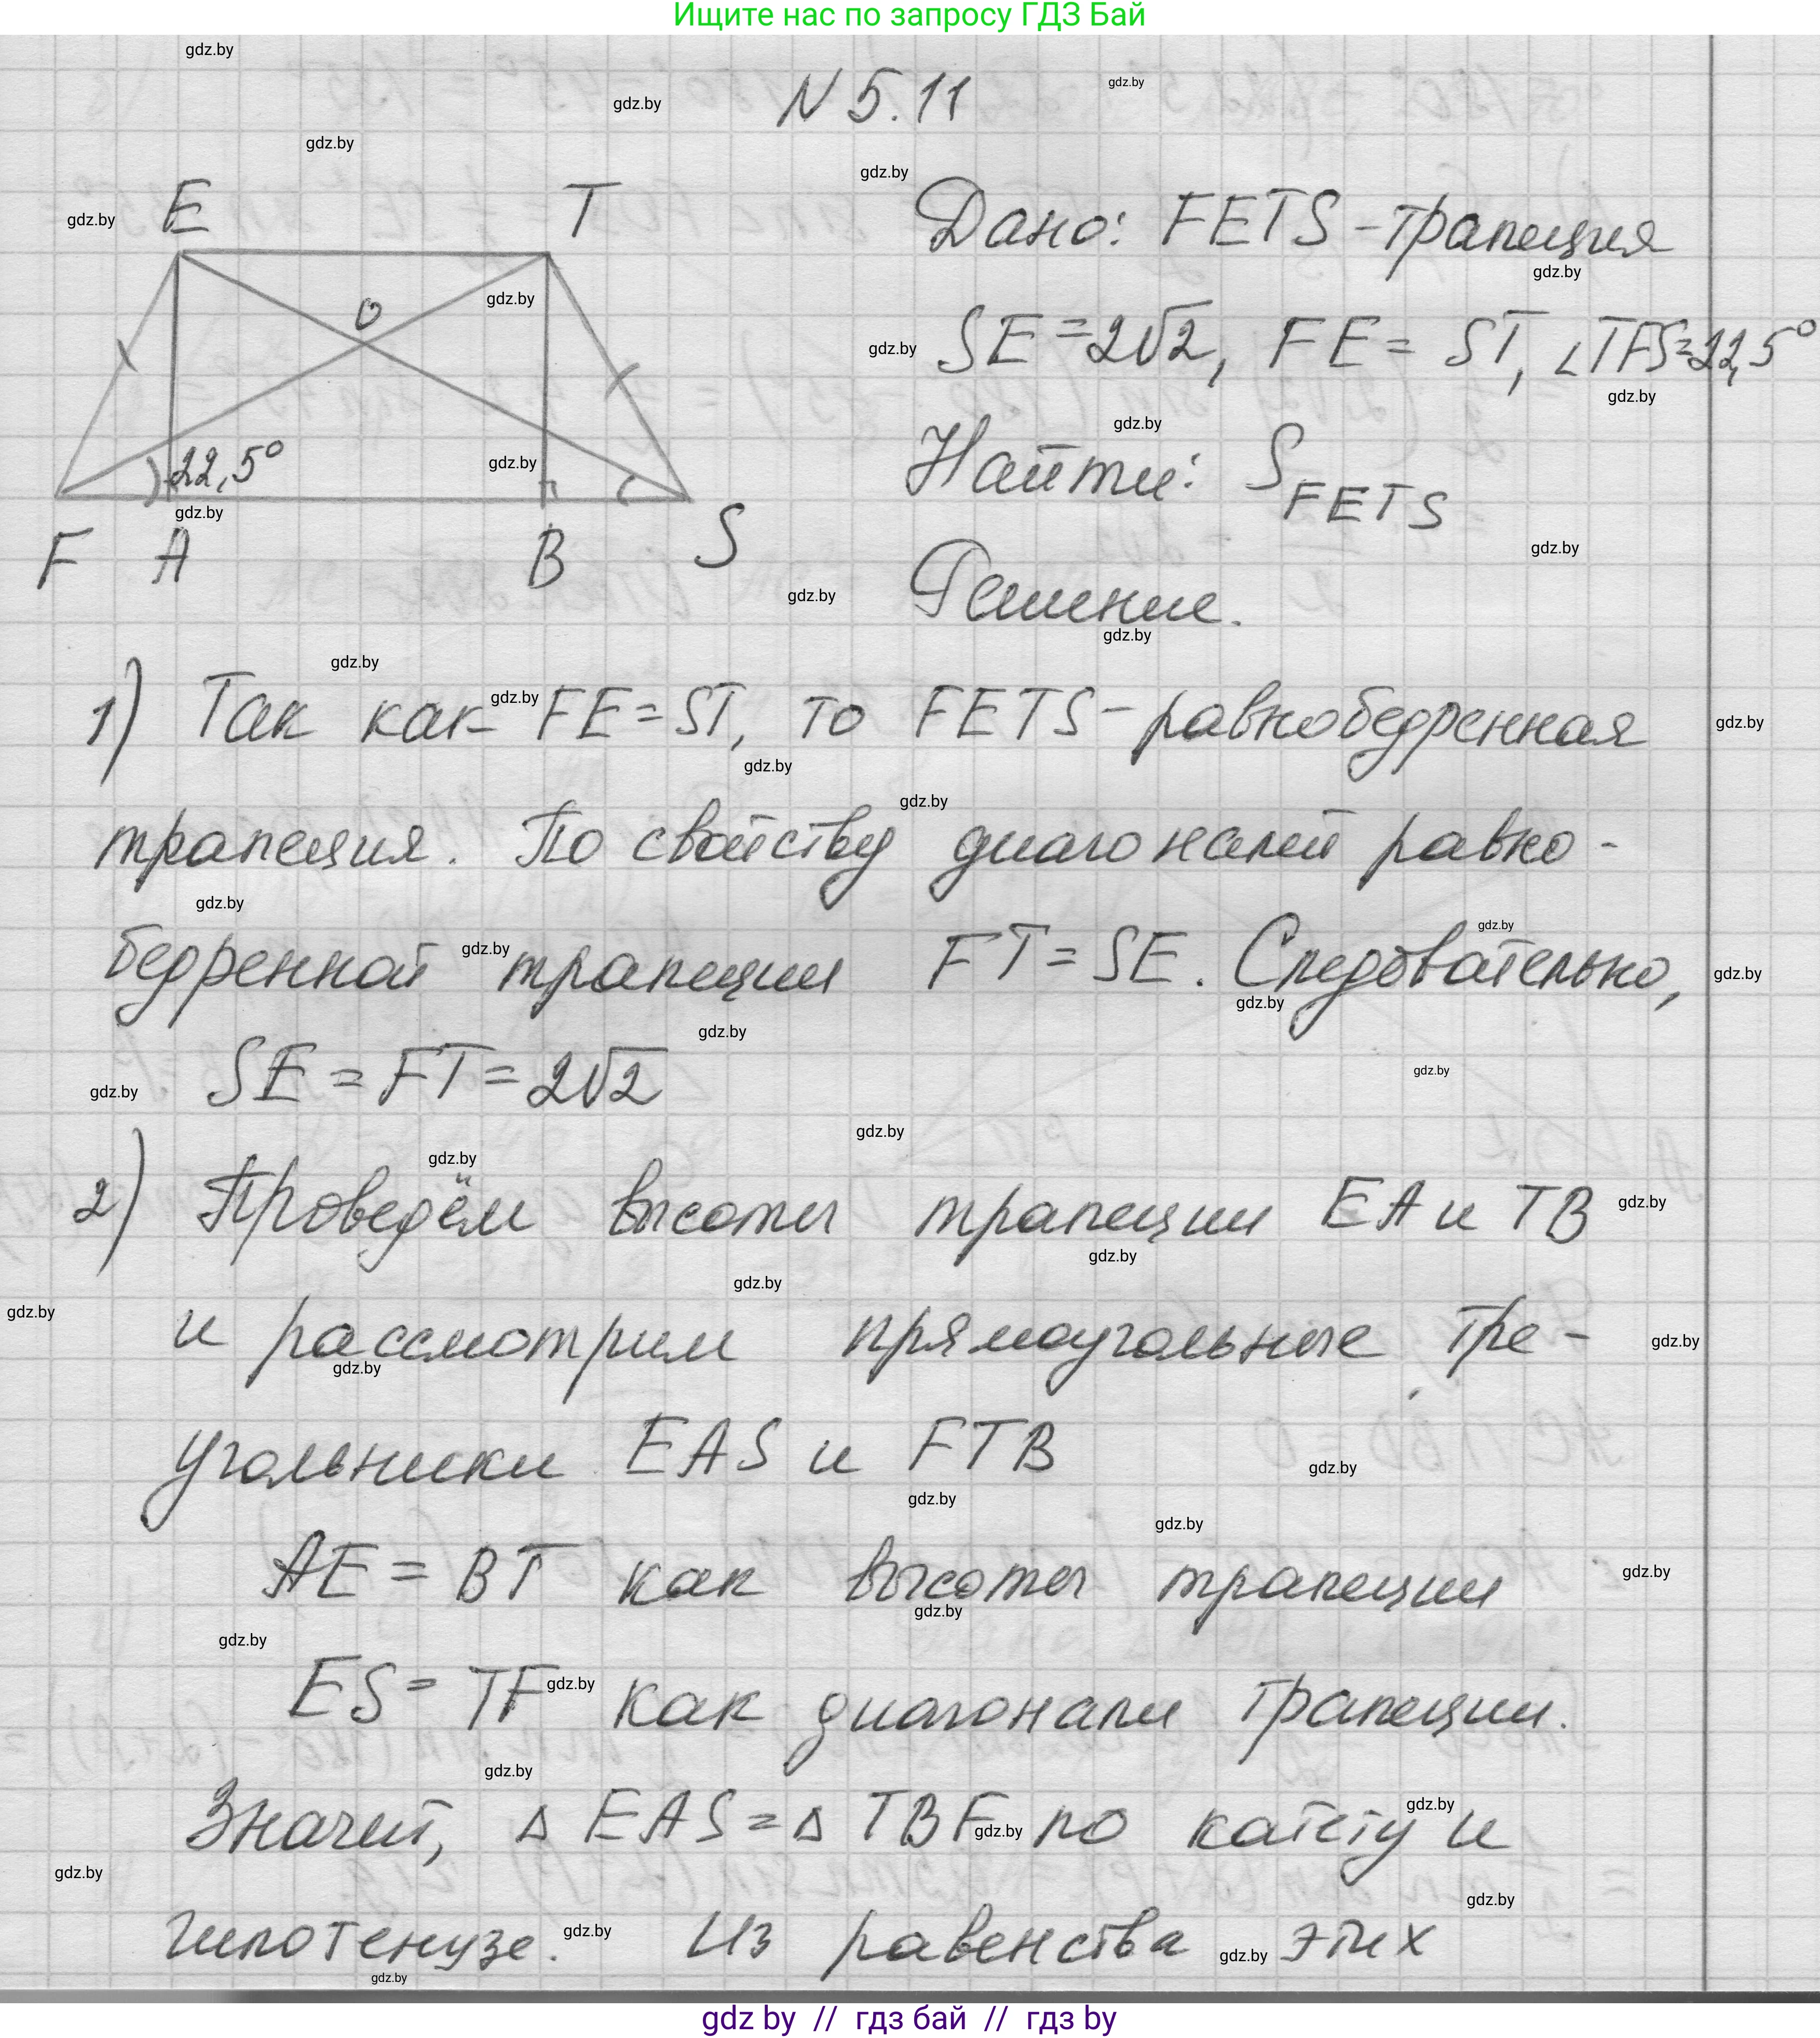 Ищите нас по запросу ГДЗ Бай
N 5.11
E T
O
22,5°
F A B S
Дано: FETS - трапеция
SE = 2√2, FE = ST, ∠TFS = 22,5°
Найти: S FETS
Решение.
1) Так как FE = ST, то FETS - равнобедренная
трапеция. По свойству диагоналей равно-
бедренной трапеции FT = SE. Следовательно,
SE = FT = 2√2
2) Проведём высоты трапеции EA и TB
и рассмотрим прямоугольные тре-
угольники EAS и FTB
AE = BT как высоты трапеции
ES = TF как диагонали трапеции.
Значит, Δ EAS = Δ TBF по катету и
гипотенузе. Из равенства этих
gdz by // гдз бай // гдз by